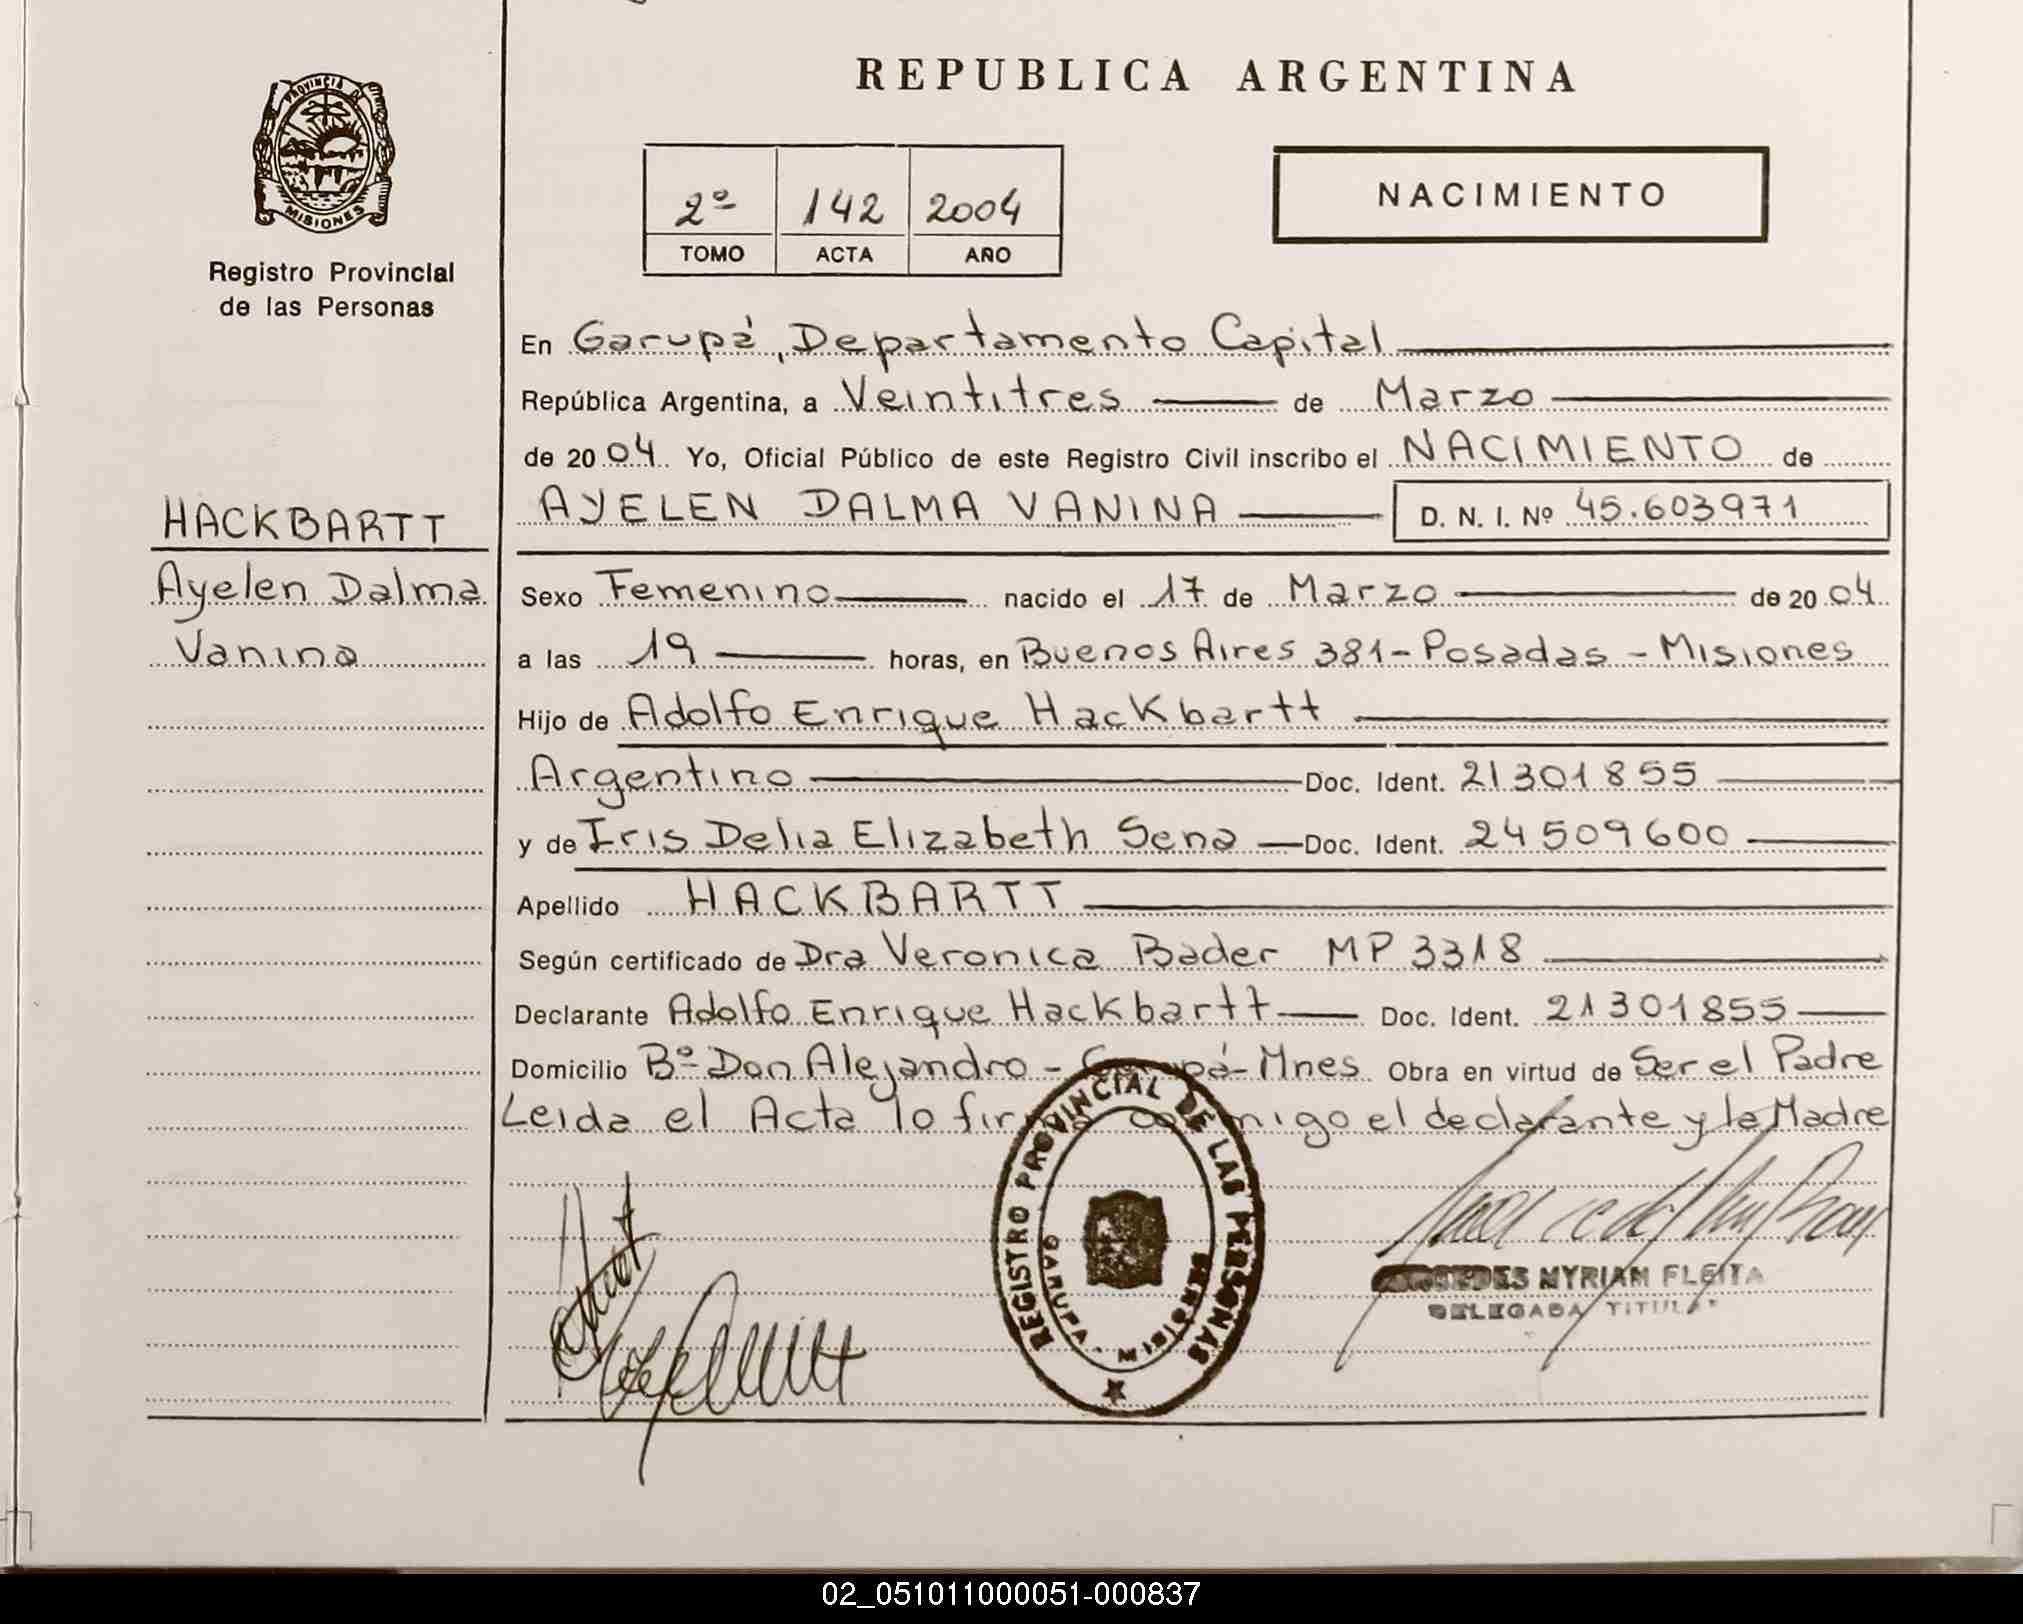 REPUBLICA ARGENTINA
PROVINCIA DE
MISIONES
Registro Provincial
de las Personas
2º 142 2004
TOMO ACTA AÑO
NACIMIENTO
En Garupá, Departamento Capital
República Argentina, a Veintitres de Marzo
de 2004 Yo, Oficial Público de este Registro Civil inscribo el NACIMIENTO de
AYELEN DALMA VANINA D. N. I. Nº 45.603971
HACKBARTT
Ayelen Dalma
Vanina
Sexo Femenino nacido el 17 de Marzo de 2004
a las 19 horas, en Buenos Aires 381-Posadas - Misiones
Hijo de Adolfo Enrique Hackbartt
Argentino Doc. Ident. 21301855
y de Iris Delia Elizabeth Sena Doc. Ident. 24509600
Apellido HACKBARTT
Según certificado de Dra Veronica Bader MP 3318
Declarante Adolfo Enrique Hackbartt Doc. Ident. 21301855
Domicilio Bº Don Alejandro - Garupá-Mnes. Obra en virtud de Ser el Padre
Leida el Acta lo firma conmigo el declarante y la Madre
REGISTRO PROVINCIAL DE LAS PERSONAS
GARUPA - MISIONES
MYRIAM FLEITA
DELEGADA TITULAR
02_051011000051-000837